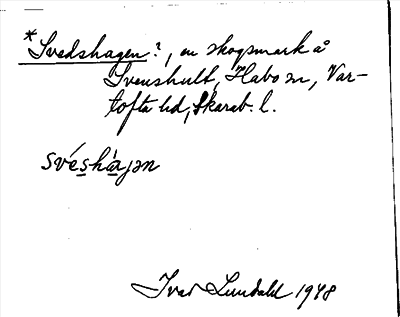 *Svedshagen?, en skogsmark å
Svenshult, Habo sn, Var-
tofta hd, Skarab. l.
svéshàjən
Ivar Lundahl 1948